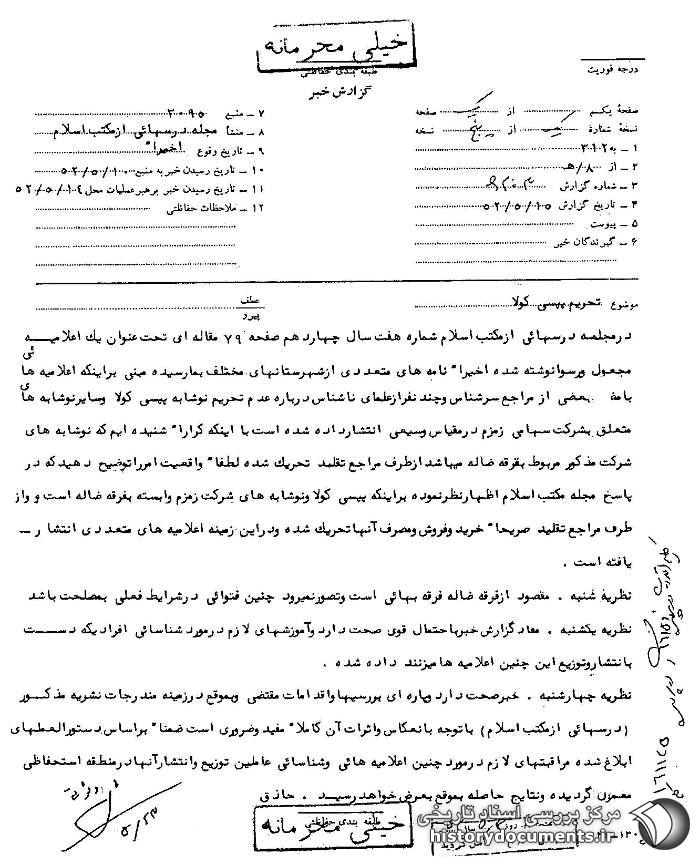 خیلی محرمانه
طبقه بندی حفاظتی
گزارش خبر
درجه فوریت
صفحه یکم از یک صفحه
نسخه شماره یک از پنج نسخه
۱ ـ به ۳۱۲
۲ ـ از ۸/هـ
۳ ـ شماره گزارش
۴ ـ تاریخ گزارش ۵۲/۵/۱۵
۵ ـ پیوست
۶ ـ گیرندگان خبر
۷ ـ منبع ۳۰۹۵
۸ ـ منشأ مجله درسهائی ازمکتب اسلام
۹ ـ تاریخ وقوع اخیرا"
۱۰ ـ تاریخ رسیدن خبر به منبع ۵۲/۵/۱۰
۱۱ ـ تاریخ رسیدن خبر برهبر عملیات محل ۵۲/۵/۱۴
۱۲ ـ ملاحظات حفاظتی
موضوع تحریم پپسی کولا
عطف
پیرو
درمجلسه درسهائی ازمکتب اسلام شماره هفت سال چهاردهم صفحه ۷۹ مقاله ای تحت عنوان یك اعلامیه
مجعول ورسوانوشته شده اخیرا" نامه های متعددی ازشهرستانهای مختلف بمارسیده مبنی براینکه اعلامیه هائی
بامضای بعضی از مراجع سرشناس وچند نفرازعلمای ناشناس درباره عدم تحریم نوشابه پپسی کولا وسایرنوشابه های
متعلق بشرکت سهامی زمزم درمقیاس وسیعی انتشارداده شده است با اینکه کرارا" شنیده ایم که نوشابه های
شرکت مذکور مربوط بفرقه ضاله میباشد ازطرف مراجع تقلید تحریك شده لطفا" واقعیت امرراتوضیح دهید که در
پاسخ مجله مکتب اسلام اظهارنظرنموده براینکه پپسی کولا ونوشابه های شرکت زمزم وابسته بفرقه ضاله است و از
طرف مراجع تقلید صریحا" خرید وفروش ومصرف آنها تحریك شده ودراین زمینه اعلامیه های متعددی انتشار ـ
یافته است .
نظریه شنبه . مقصود ازفرقه ضاله فرقه بهائی است وتصورنمیرود چنین فتوائی درشرایط فعلی بمصلحت باشد
نظریه یکشنبه . مفاد گزارش خبربا حتمال قوی صحت دارد وآموزشهای لازم درمورد شناسائی افرادیکه دست
بانتشار وتوزیع این چنین اعلامیه ها میزنند داده شده .
نظریه چهارشنبه . خبرصحت دارد وپاره ای بررسیها واقدامات مقتضی وبموقع درزمینه مندرجات نشریه مذکور
(درسهائی ازمکتب اسلام) با توجه با نعکاس واثرات آن کاملا" مفید وضروری است ضمنا" براساس دستورالعملهای
ابلاغ شده مراقبتهای لازم درمورد چنین اعلامیه هائی وشناسائی عاملین توزیع وانتشارآنها درمنطقه استحفاظی
معمول گردیده ونتایج حاصله بموقع بعرض خواهد رسید . حاذق
۵/۲۳
طبقه بندی حفاظتی
خیلی محرمانه
مرکز بررسی اسناد تاریخی
historydocuments.ir